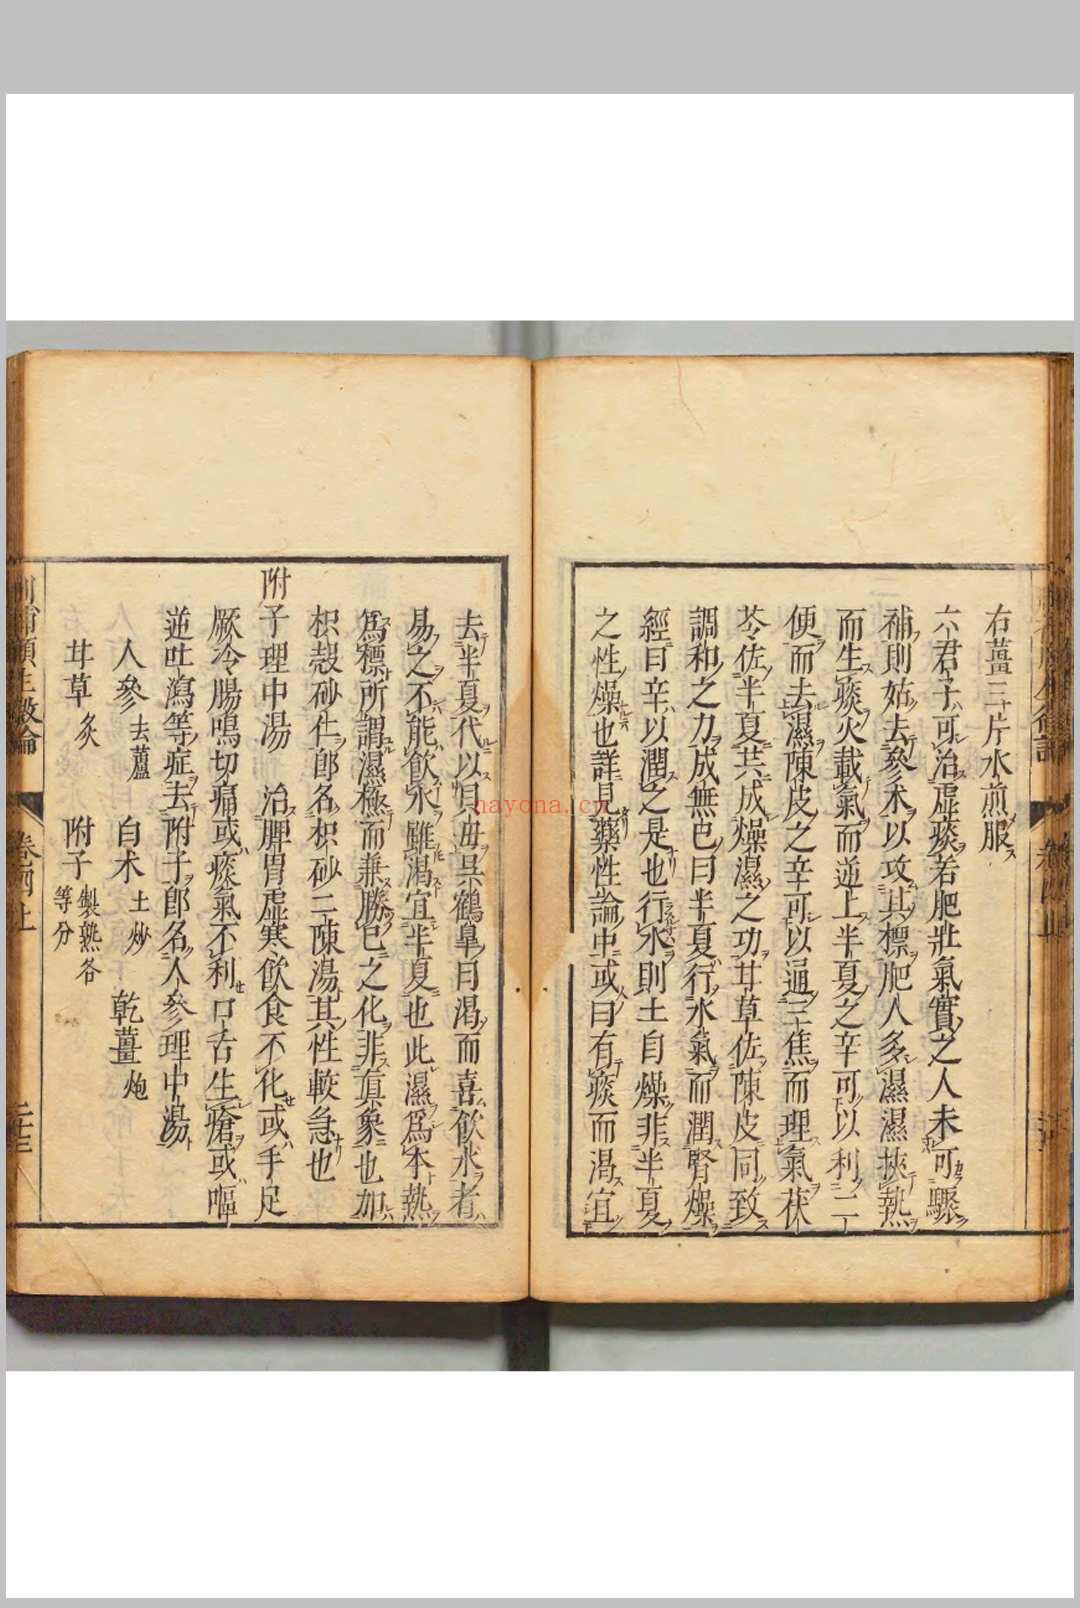 右薑三片水煎服
六君子可治虛痰若肥壯氣實之人未可驟
補則姑去參朮以攻其標肥人多濕濕挾熱
而生痰火載氣而逆上半夏之辛可以利二
便而去濕陳皮之辛可以通三焦而理氣茯
苓佐半夏共成燥濕之功甘草佐陳皮同致
調和之力成無已曰半夏行水氣而潤腎燥
經曰辛以潤之是也行水則土自燥非半夏
之性燥也詳見藥性論中或曰有痰而渴宜
去半夏代以貝母吳鶴皐曰渴而喜飲水者
易之不能飲水雖渴宜半夏也此濕為本熱
為標所謂濕極而兼勝已之化非真象也加
枳殼砂仁郎名枳砂二陳湯其性較急也
附子理中湯 治脾胃虛寒飲食不化或手足
厥冷腸鳴切痛或痰氣不利口舌生瘡或嘔
逆吐瀉等症去附子郎名人參理中湯
人參去蘆 白朮土炒 乾薑炮
甘草炙 附子製熟各等分
卷四上
nayona.cn